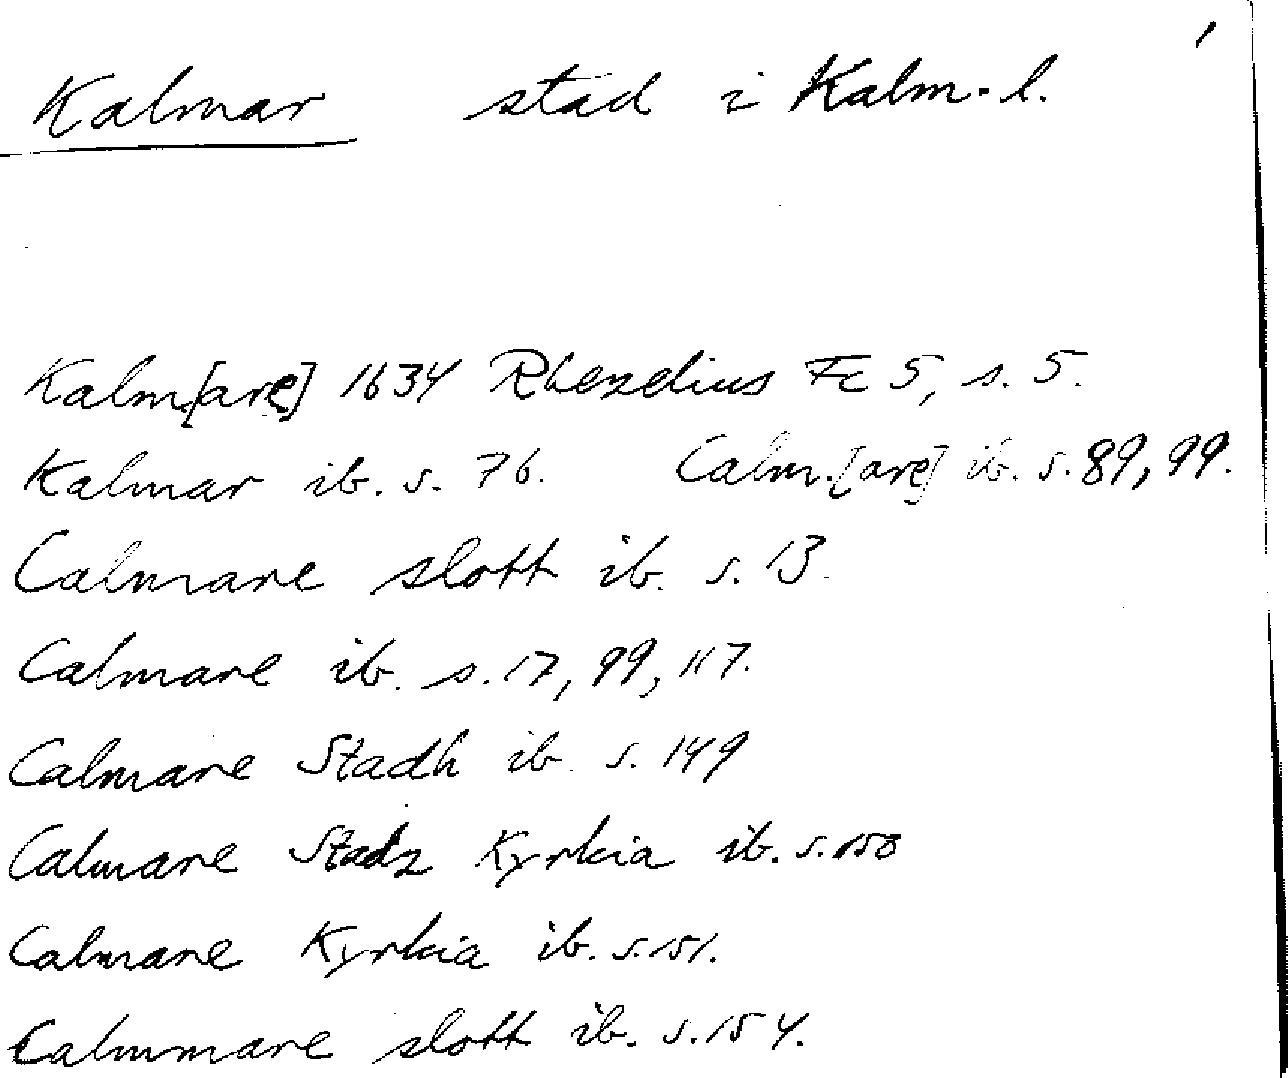 Kalmar stad i Kalm. l.
Kalm[are] 1634 Rhezelius Fc 5, s. 5.
Kalmar ib. s. 76. Calm.[are] ib. s. 89, 99.
Calmare slott ib. s. 13.
Calmare ib. s. 17, 99, 117.
Calmare Stadh ib. s. 149
Calmare Stadz Kyrkia ib. s. 150
Calmare Kyrkia ib. s. 151.
Calmmare slott ib. s. 154.